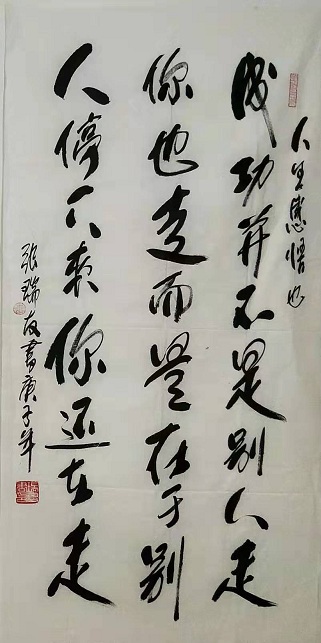 人生感悟也
成功并不是别人走
你也走而是在于别
人停下来你还在走
张瑞友書庚子年